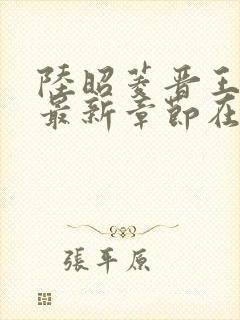 陸昭菱晋王
最新章節在
張平原